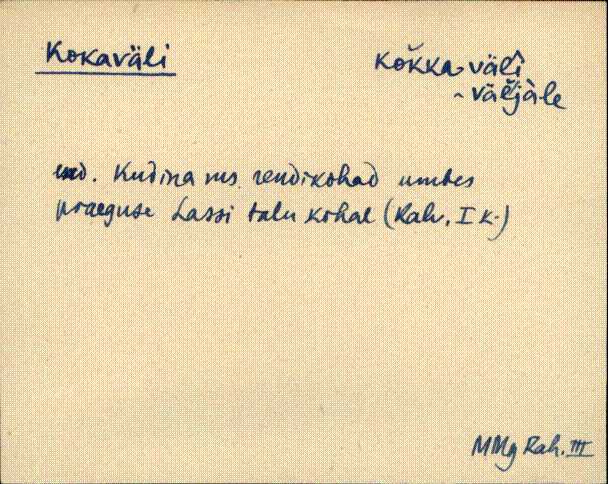 Kokaväli
kokka väli
~ väljale
end. Kudina ms. rendikohad umbes
praeguse Lassi talu kohal (Rahv. I k.)
MMg Rah. III